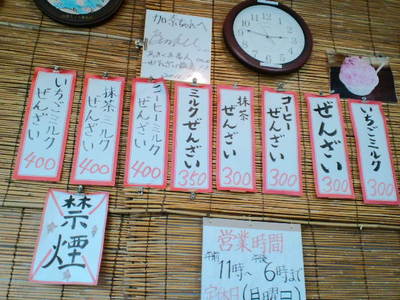 加奈ちゃんへ
いちごミルク
ぜんざい
400
抹茶ミルク
ぜんざい
400
コーヒーミルク
ぜんざい
400
ミルクぜんざい
350
抹茶
ぜんざい
300
コーヒー
ぜんざい
300
ぜんざい
300
いちごミルク
300
禁煙
営業時間
午前 午後
11時〜6時まで
定休日(日曜日)